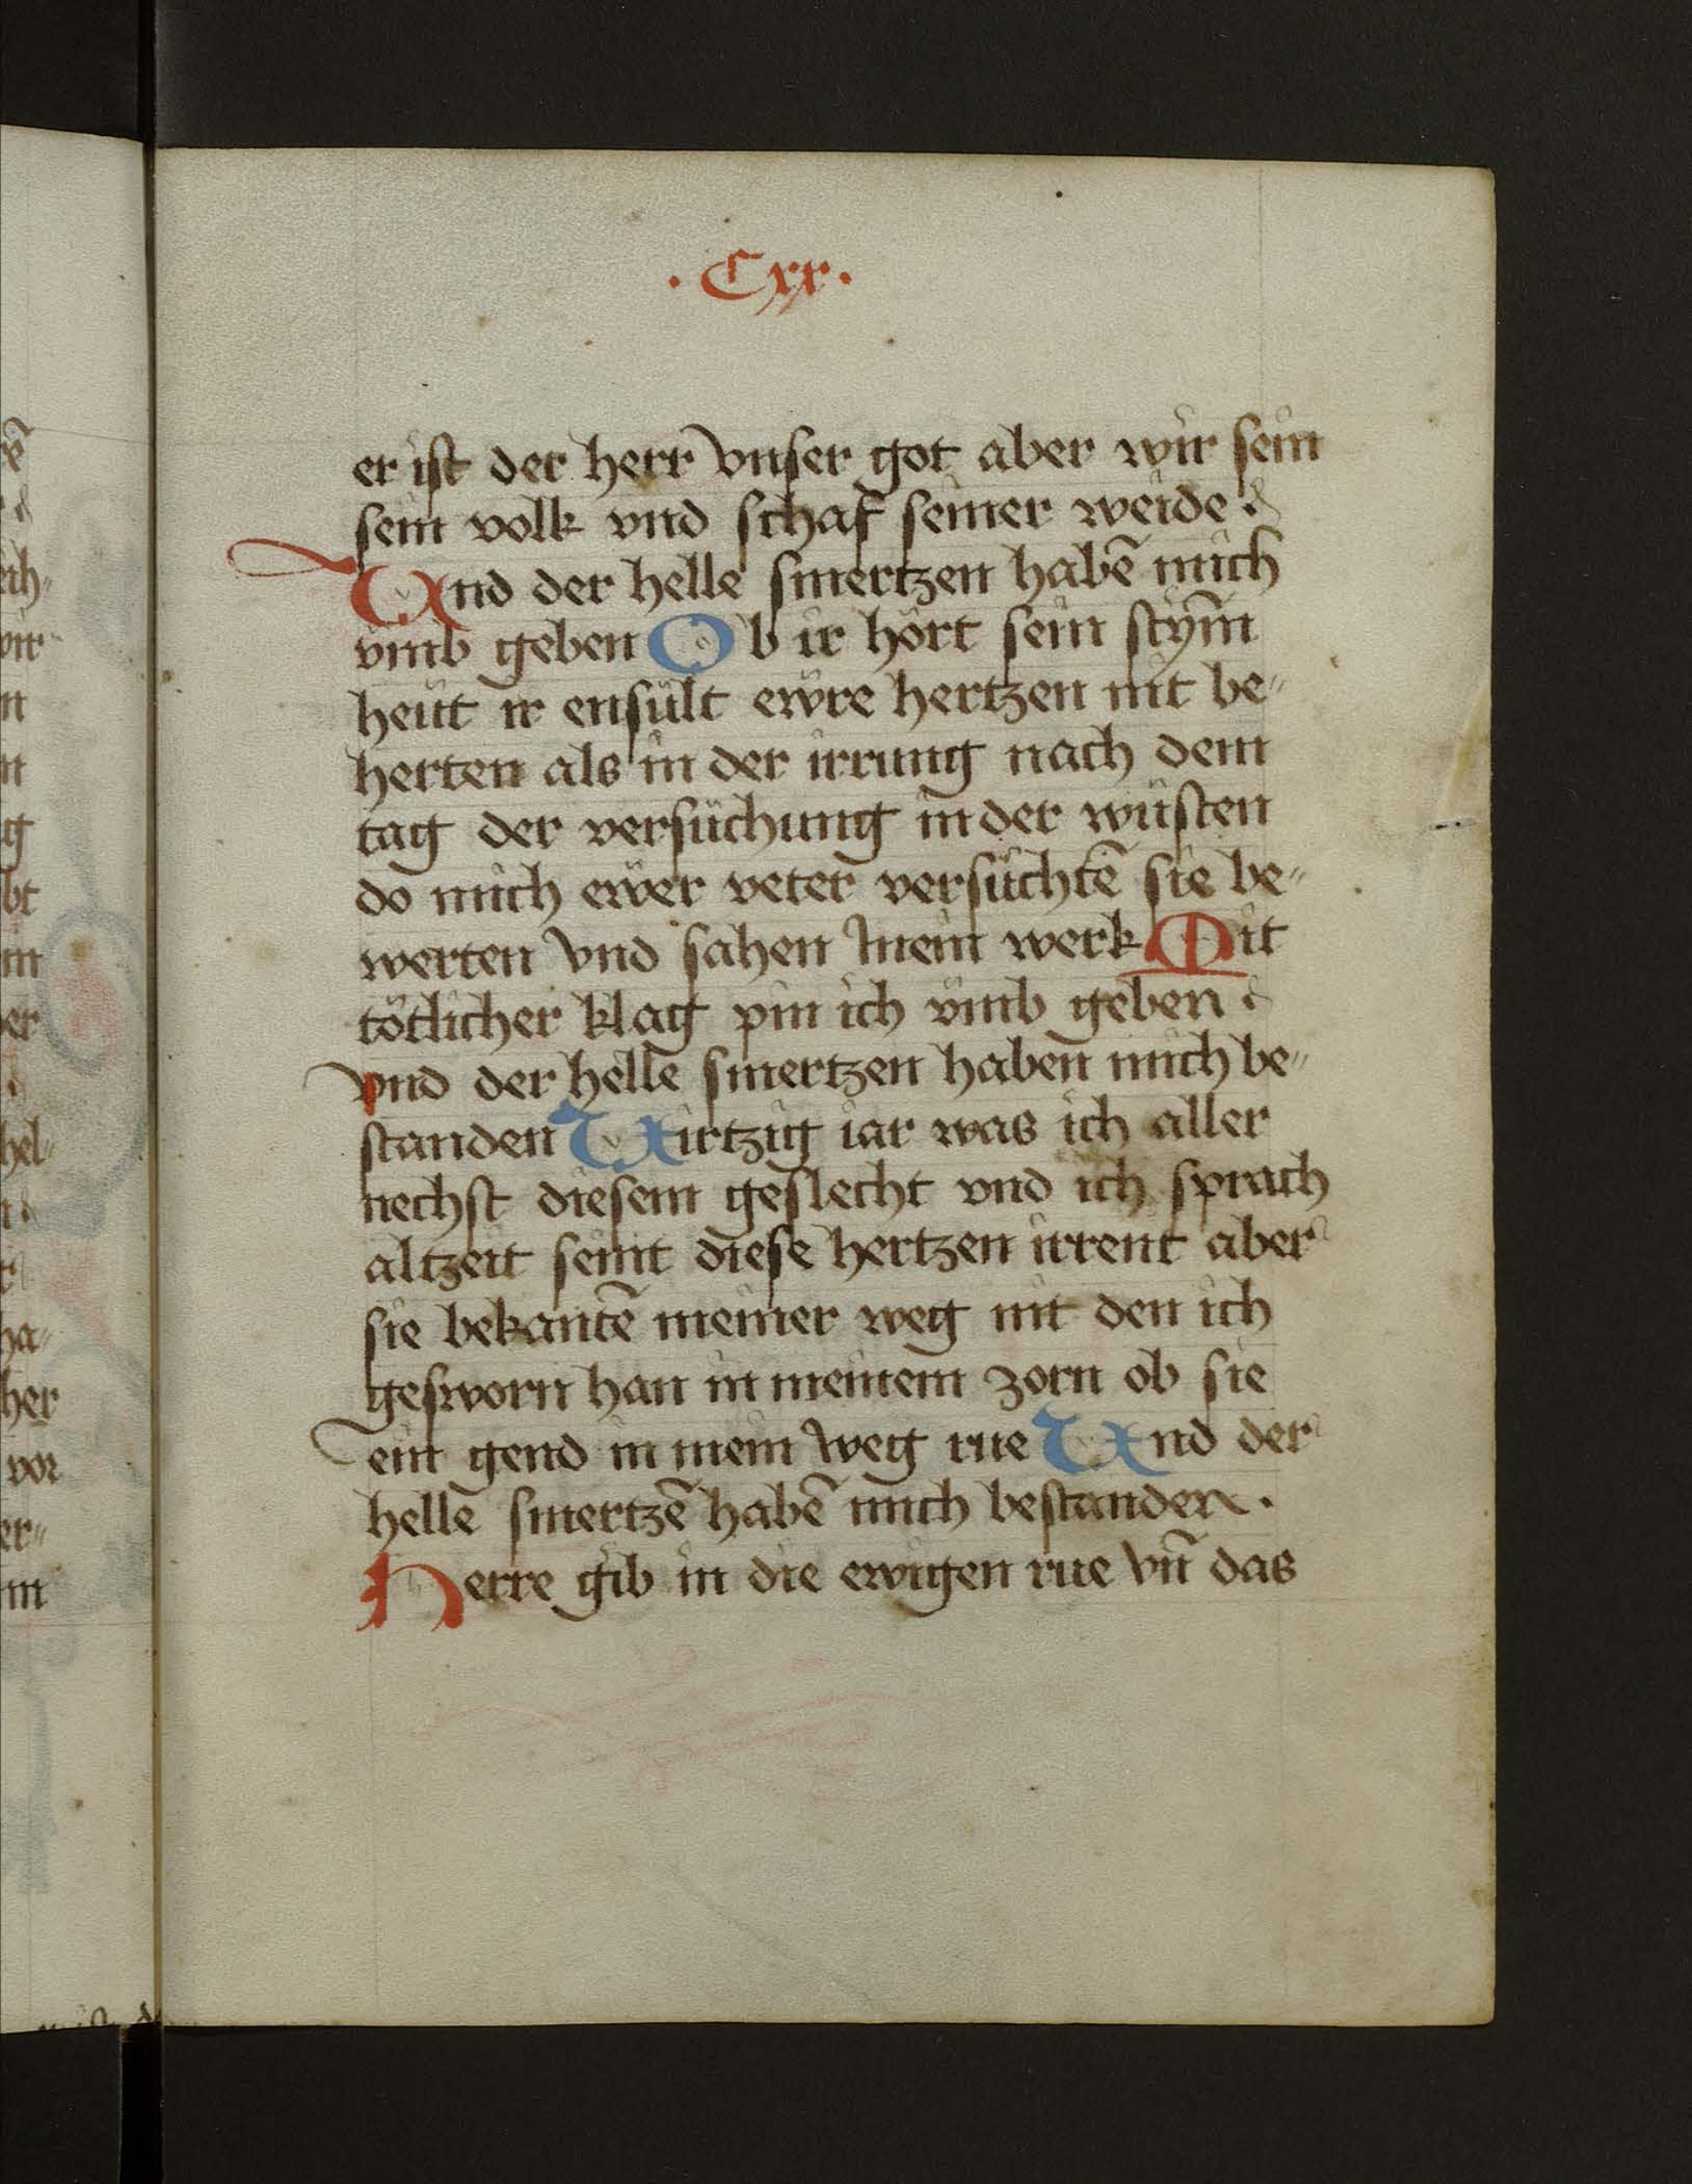 · Cxx ·
er ist der herr vnser got aber wir sein
sein volk vnd schaf seiner weide ·
Und der helle smertzen habē mich
vmb geben Ob ir hört sein stym̄
heüt ir ensült ewre hertzen nit be„
herten als in der irrung nach dem
tag der versüchung in der wüsten
do mich ewer veter versüchtē sie be„
werten vnd sahen mein werk Mit
tötlicher klag pin ich vmb geben ·
vnd der helle smertzen haben mich be„
standen Uirtzig iar was ich aller
nechst diesem geslecht vnd ich sprach
altzeit seint diese hertzen irrent aber
sie bekantē meiner weg nit den ich
gesworn han in meinem zorn ob sie
ein gend in mein weg rue Und der
helle smertzē habē mich bestanden ·
Herre gib in die ewigen rue vn̄ das